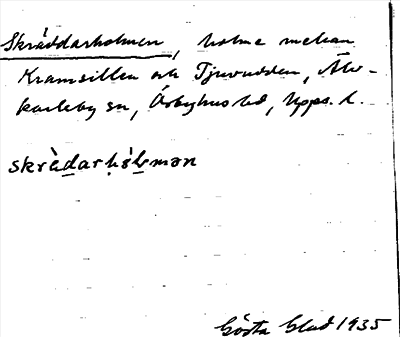 Skräddarholmen, holme mellan
Kramsillen och Tjuvudden, Älv-
karleby sn, Örbyhus hd, Upps. l.
skrὰdarhólmən
Gösta Glad 1935